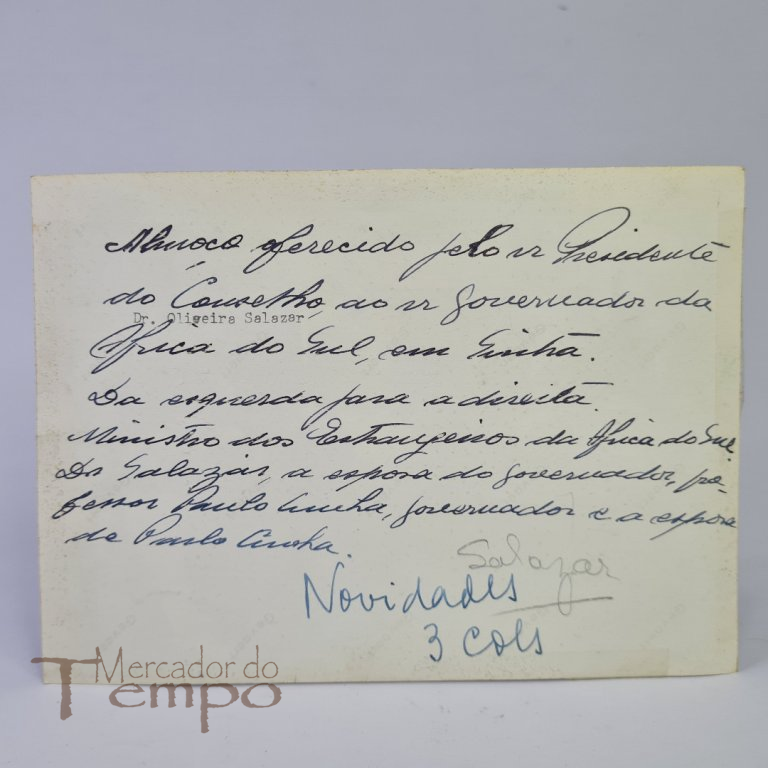 Almoço oferecido pelo sr Presidente
do Conselho, ao sr governador da
Dr. Oligeira Salazar
África do Sul, em Sintra.
Da esquerda para a direita.
Ministro dos Estrangeiros da África do Sul
Dr Salazar, a esposa do governador, pro-
fessor Paulo Cunha, governador e a esposa
de Paulo Cunha.
Salazar
Novidades
3 cols
Mercador do
Tempo